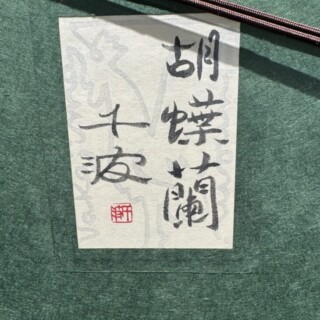 胡蝶蘭
千波